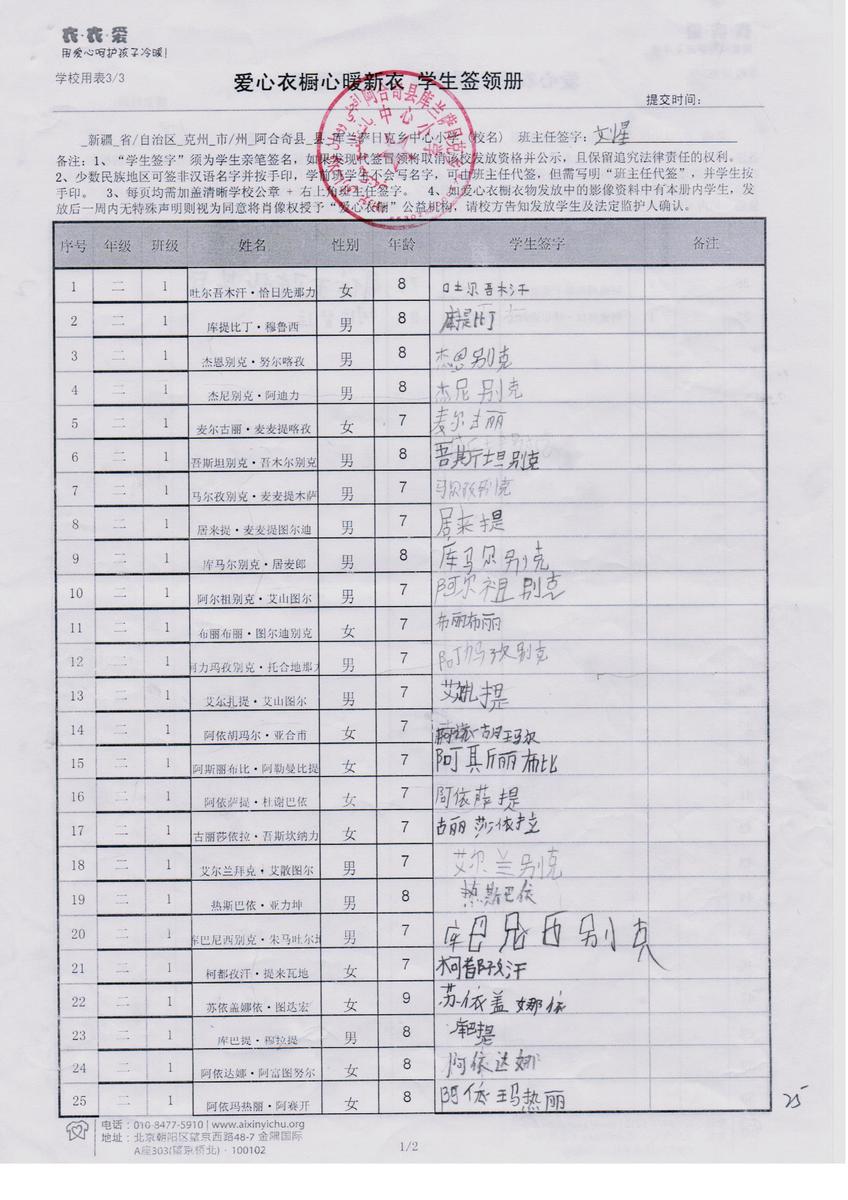 衣·衣·爱
用爱心呵护孩子冷暖!
学校用表3/3
爱心衣橱心暖新衣 学生签领册
提交时间：
_新疆_省/自治区_克州_市/州_阿合奇县_县_库兰萨日克乡中心小学（校名） 班主任签字：
备注：1、“学生签字”须为学生亲笔签名，如果发现代签冒领将取消该校发放资格并公示，且保留追究法律责任的权利。
2、少数民族地区可签非汉语名字并按手印，学前班学生不会写名字，可由班主任代签，但需写明“班主任代签”，并学生按
手印。 3、每页均需加盖清晰学校公章 + 右上角班主任签字。 4、如爱心衣橱衣物发放中的影像资料中有本册内学生，发
放后一周内无特殊声明则视为同意将肖像权授予“爱心衣橱”公益机构，请校方告知发放学生及法定监护人确认。
阿合奇县库兰萨日克乡
中心小学
序号 年级 班级 姓名 性别 年龄 学生签字 备注
1 二 1 吐尔吾木汗·恰日先那力 女 8 吐尔吾木汗
2 二 1 库提比丁·穆鲁西 男 8 库提比丁
3 二 1 杰恩别克·努尔喀孜 男 8 杰恩别克
4 二 1 杰尼别克·阿迪力 男 8 杰尼别克
5 二 1 麦尔古丽·麦麦提喀孜 女 7 麦尔古丽
6 二 1 吾斯坦别克·吾木尔别克 男 8 吾斯坦别克
7 二 1 马尔孜别克·麦麦提木萨 男 7 马尔孜别克
8 二 1 居来提·麦麦提图尔迪 男 7 居来提
9 二 1 库马尔别克·居麦郎 男 8 库马尔别克
10 二 1 阿尔祖别克·艾山图尔 男 7 阿尔祖别克
11 二 1 布丽布丽·图尔迪别克 女 7 布丽布丽
12 二 1 阿力玛孜别克·托合地那 男 7 阿力玛孜别克
13 二 1 艾尔扎提·艾山图尔 男 7 艾尔扎提
14 二 1 阿依胡玛尔·亚合甫 女 7 胡玛尔
15 二 1 阿斯丽布比·阿勒曼比提 女 7 阿其斯丽布比
16 二 1 阿依萨提·杜谢巴依 女 7 阿依萨提
17 二 1 古丽莎依拉·吾斯坎纳力 女 7 古丽莎依拉
18 二 1 艾尔兰拜克·艾散图尔 男 7 艾尔兰别克
19 二 1 热斯巴依·亚力坤 男 8 热斯巴依
20 二 1 库巴尼西别克·朱马吐尔 男 7 库巴尼西别克
21 二 1 柯都孜汗·提来瓦地 女 7 柯都孜汗
22 二 1 苏依盖娜依·图达宏 女 9 苏依盖娜依
23 二 1 库巴提·穆拉提 男 8 库巴提
24 二 1 阿依达娜·阿富图努尔 女 8 阿依达娜
25 二 1 阿依玛热丽·阿赛开 女 8 阿依玛热丽
25
电话：010-8477-5910 | www.aixinyichu.org
地址：北京朝阳区望京西路48-7 金隅国际
A座303(望京桥北)·100102
1/2